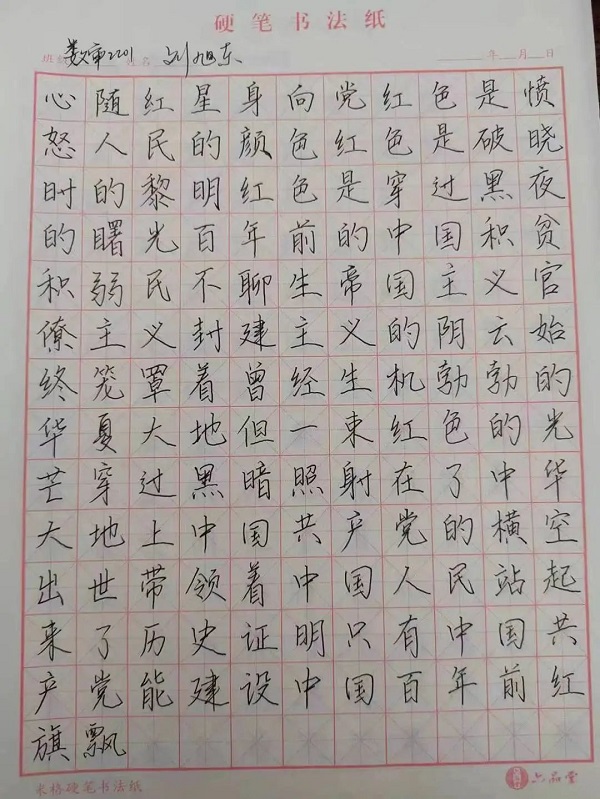 硬笔书法纸
班级 数审2201 姓名 刘旭东 年 月 日
心随红星身向党红色是愤
怒人民的颜色红色是破晓
时的黎明红色是穿过黑夜
的曙光百年前的中国积贫
积弱民不聊生帝国主义官
僚主义封建主义的阴云始
终笼罩着曾经生机勃勃的
华夏大地但一束红色的光
芒穿过黑暗照射在了中华
大地上中国共产党的横空
出世带领着中国人民站起
来了历史证明只有中国共
产党能建设中国百年前红
旗飘
米格硬笔书法纸 六品堂